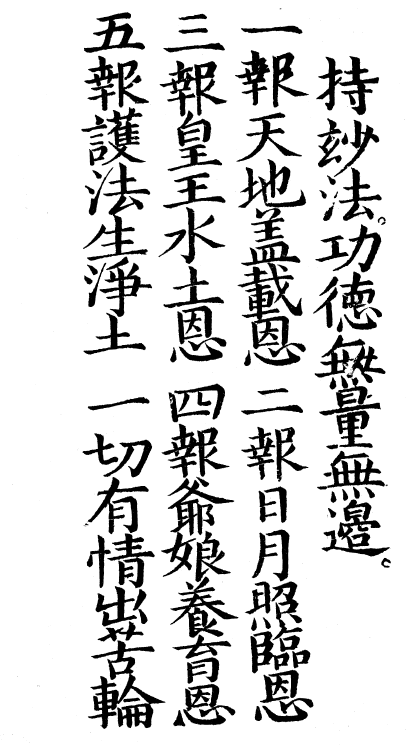 持玅法。功德無量無邊。
一報天地盖載恩　二報日月照臨恩
三報皇王水土恩　四報爺娘養育恩
五報護法生淨土　一切有情出苦輪